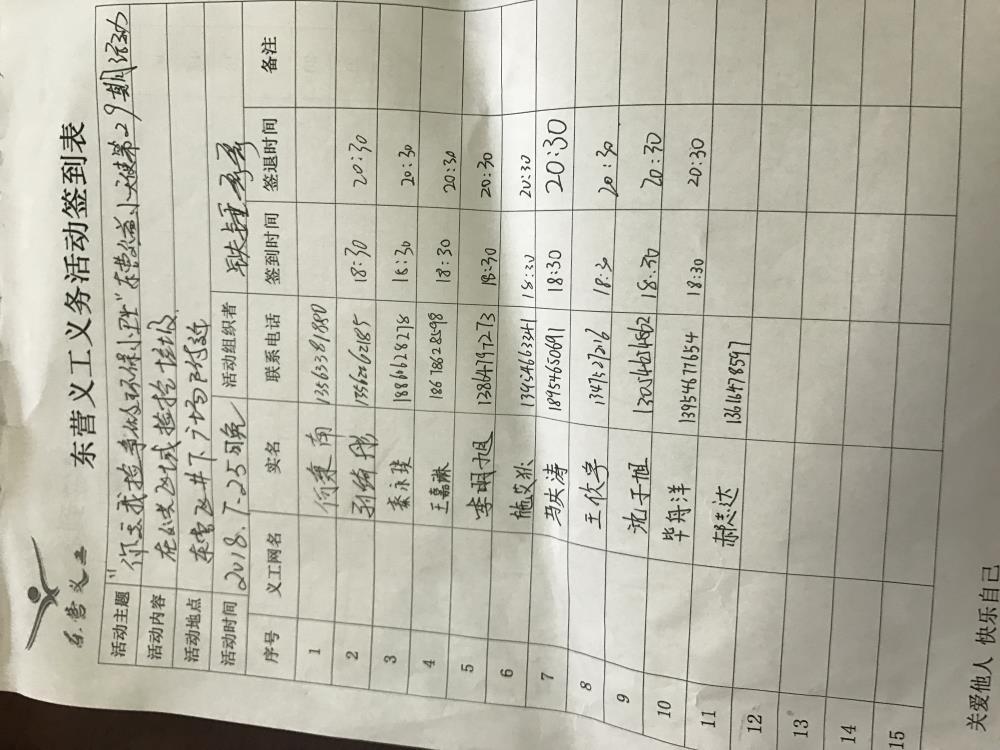 东营义工
东营义工义务活动签到表
活动主题 "你丢我捡争做环保小卫士"东营公益小天使第29期活动
活动内容 在公共区域捡拾垃圾
活动地点 东营区井下广场附近
活动时间 2018.7.25 晚 活动组织者
序号 义工网名 实名 联系电话 签到时间 签退时间 备注
1 何秉南 13563381880
2 18:30 20:30
3 秦永琪 18866628278 18:30 20:30
4 王嘉琳 18678628598 18:30 20:30
5 李明旭 13864797273 18:30 20:30
6 施艾狄 13954663341 18:30 20:30
7 马庆涛 18954650691 18:30 20:30
8 王欣宇 1347527216 18:30 20:30
9 沈于旭 18:30 20:30
10 毕舟洋 13954677654 18:30 20:30
11 郝志达 13616478597
12
13
14
15
关爱他人 快乐自己